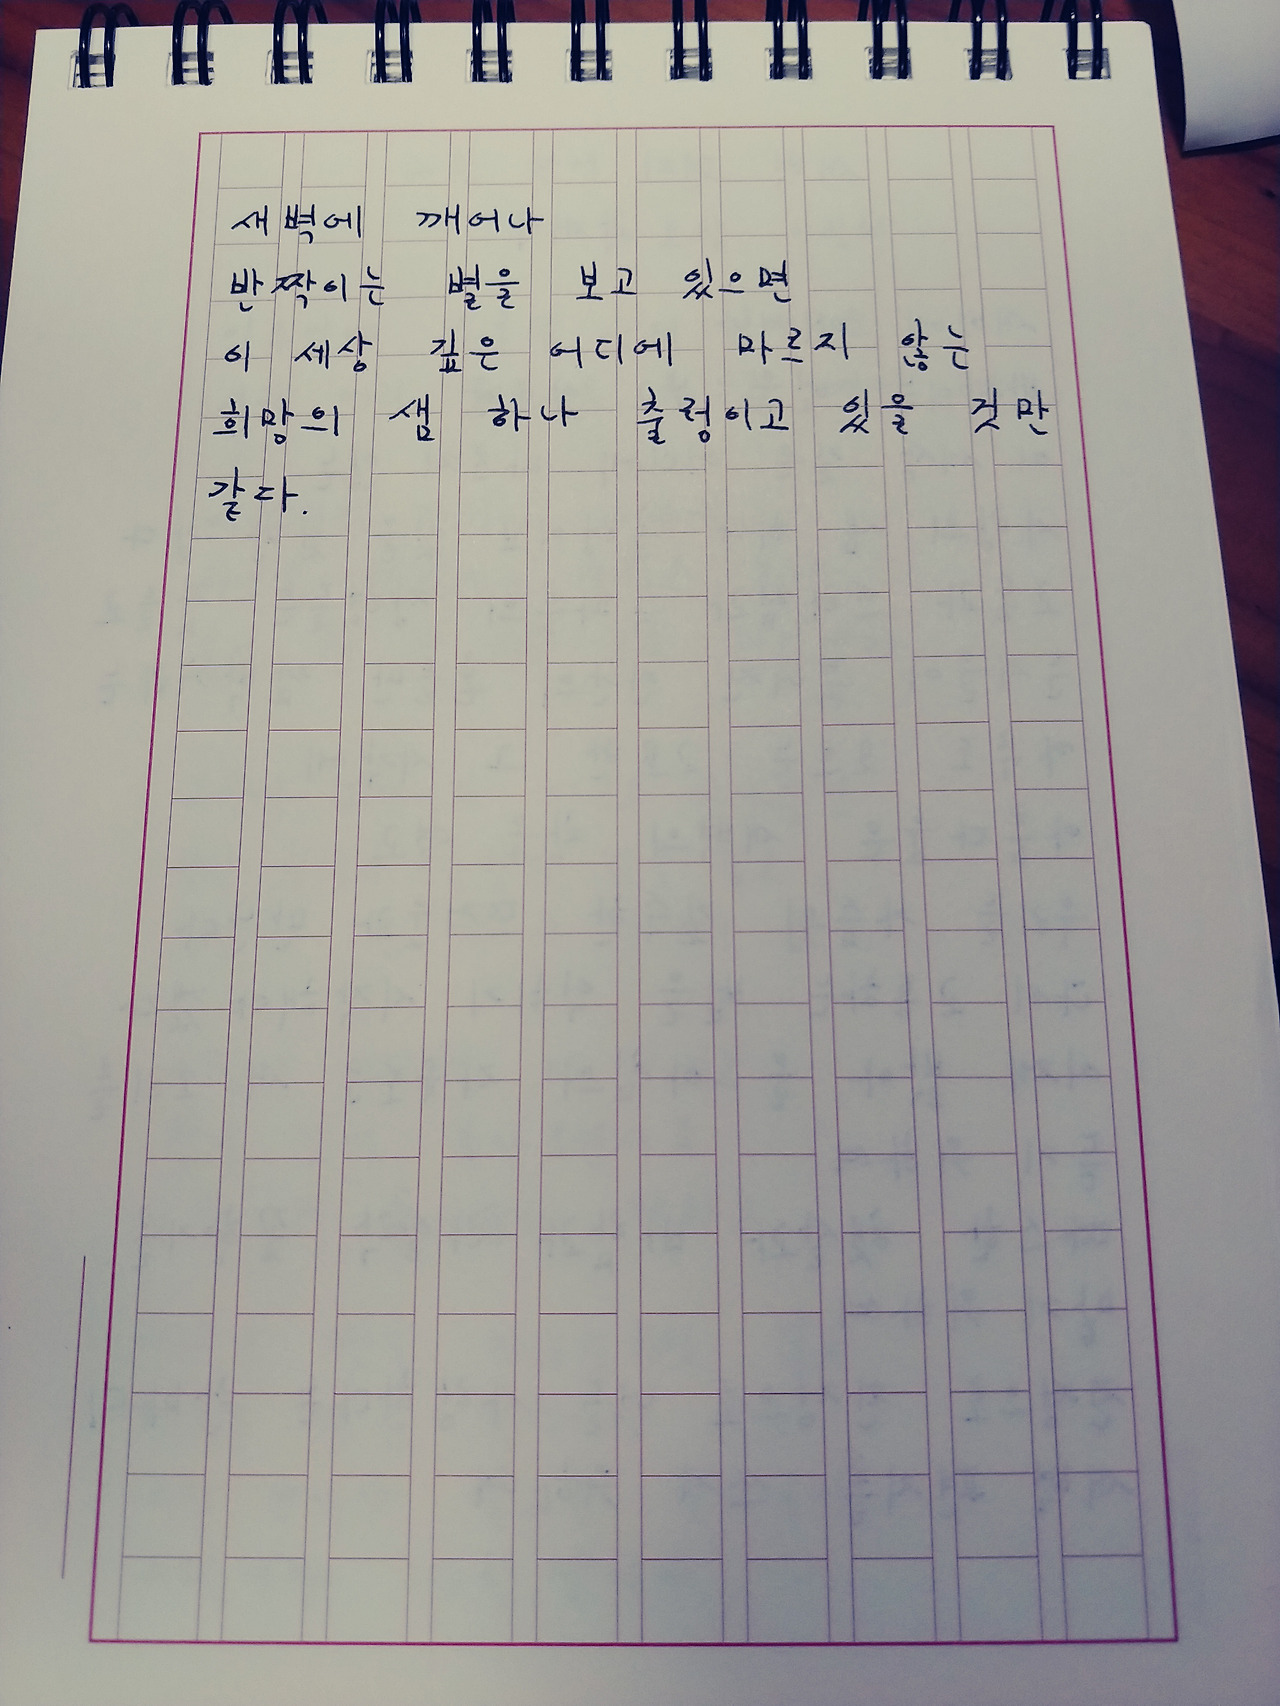 새벽에 깨어나
반짝이는 별을 보고 있으면
이 세상 깊은 어디에 마르지 않는
희망의 샘 하나 출렁이고 있을 것만
같다.